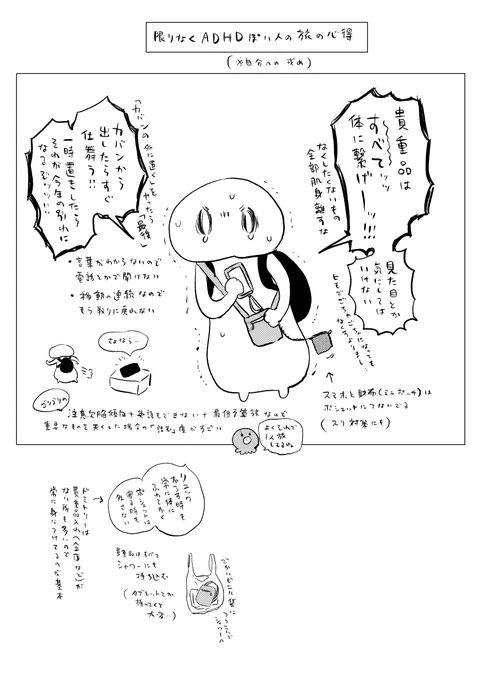 限りなくADHDぽい人の旅の心得
(※自分への戒め)
貴重品は
すべてッッ
体に繋げーッ!!!
なくしたくないもの
全部肌身離すな
見た目とか
気にしては
いけない
ヒモでごちゃごちゃになっても
なくすよりまし
「カバンの外に置く」をやったら「最後」
カバンから
出したらすぐ
仕舞う!!
一時置きをしたら
それが今生の別れに
なるぞッッ!!
・言葉がわからないので
電話とかで聞けない
・移動の連続なので
もう取りに戻れない
さよなら…
スマホと財布(ミニポーチ)は
ポシェットにつないでる
(スリ対策にも)
ゴリゴリの
注意欠陥傾向+英語もできない+最低予算旅なので
重品なものを失くした場合の「詰む」度がすごい
よくそれで
1人旅
してるな
リュック
おろす時も
常に体に
ふれておく
ポシェットは
寝る時も
外さない
ドミトリーは
貴重品入れ(金庫など)が
ない所も多いので
常に身につけてるのが基本
貴重品はすべて
シャワーにも
持ち込む
(タブレットとか
持ってくと
大変…)
でかいビニール袋に
つっこんで
シャワーへ